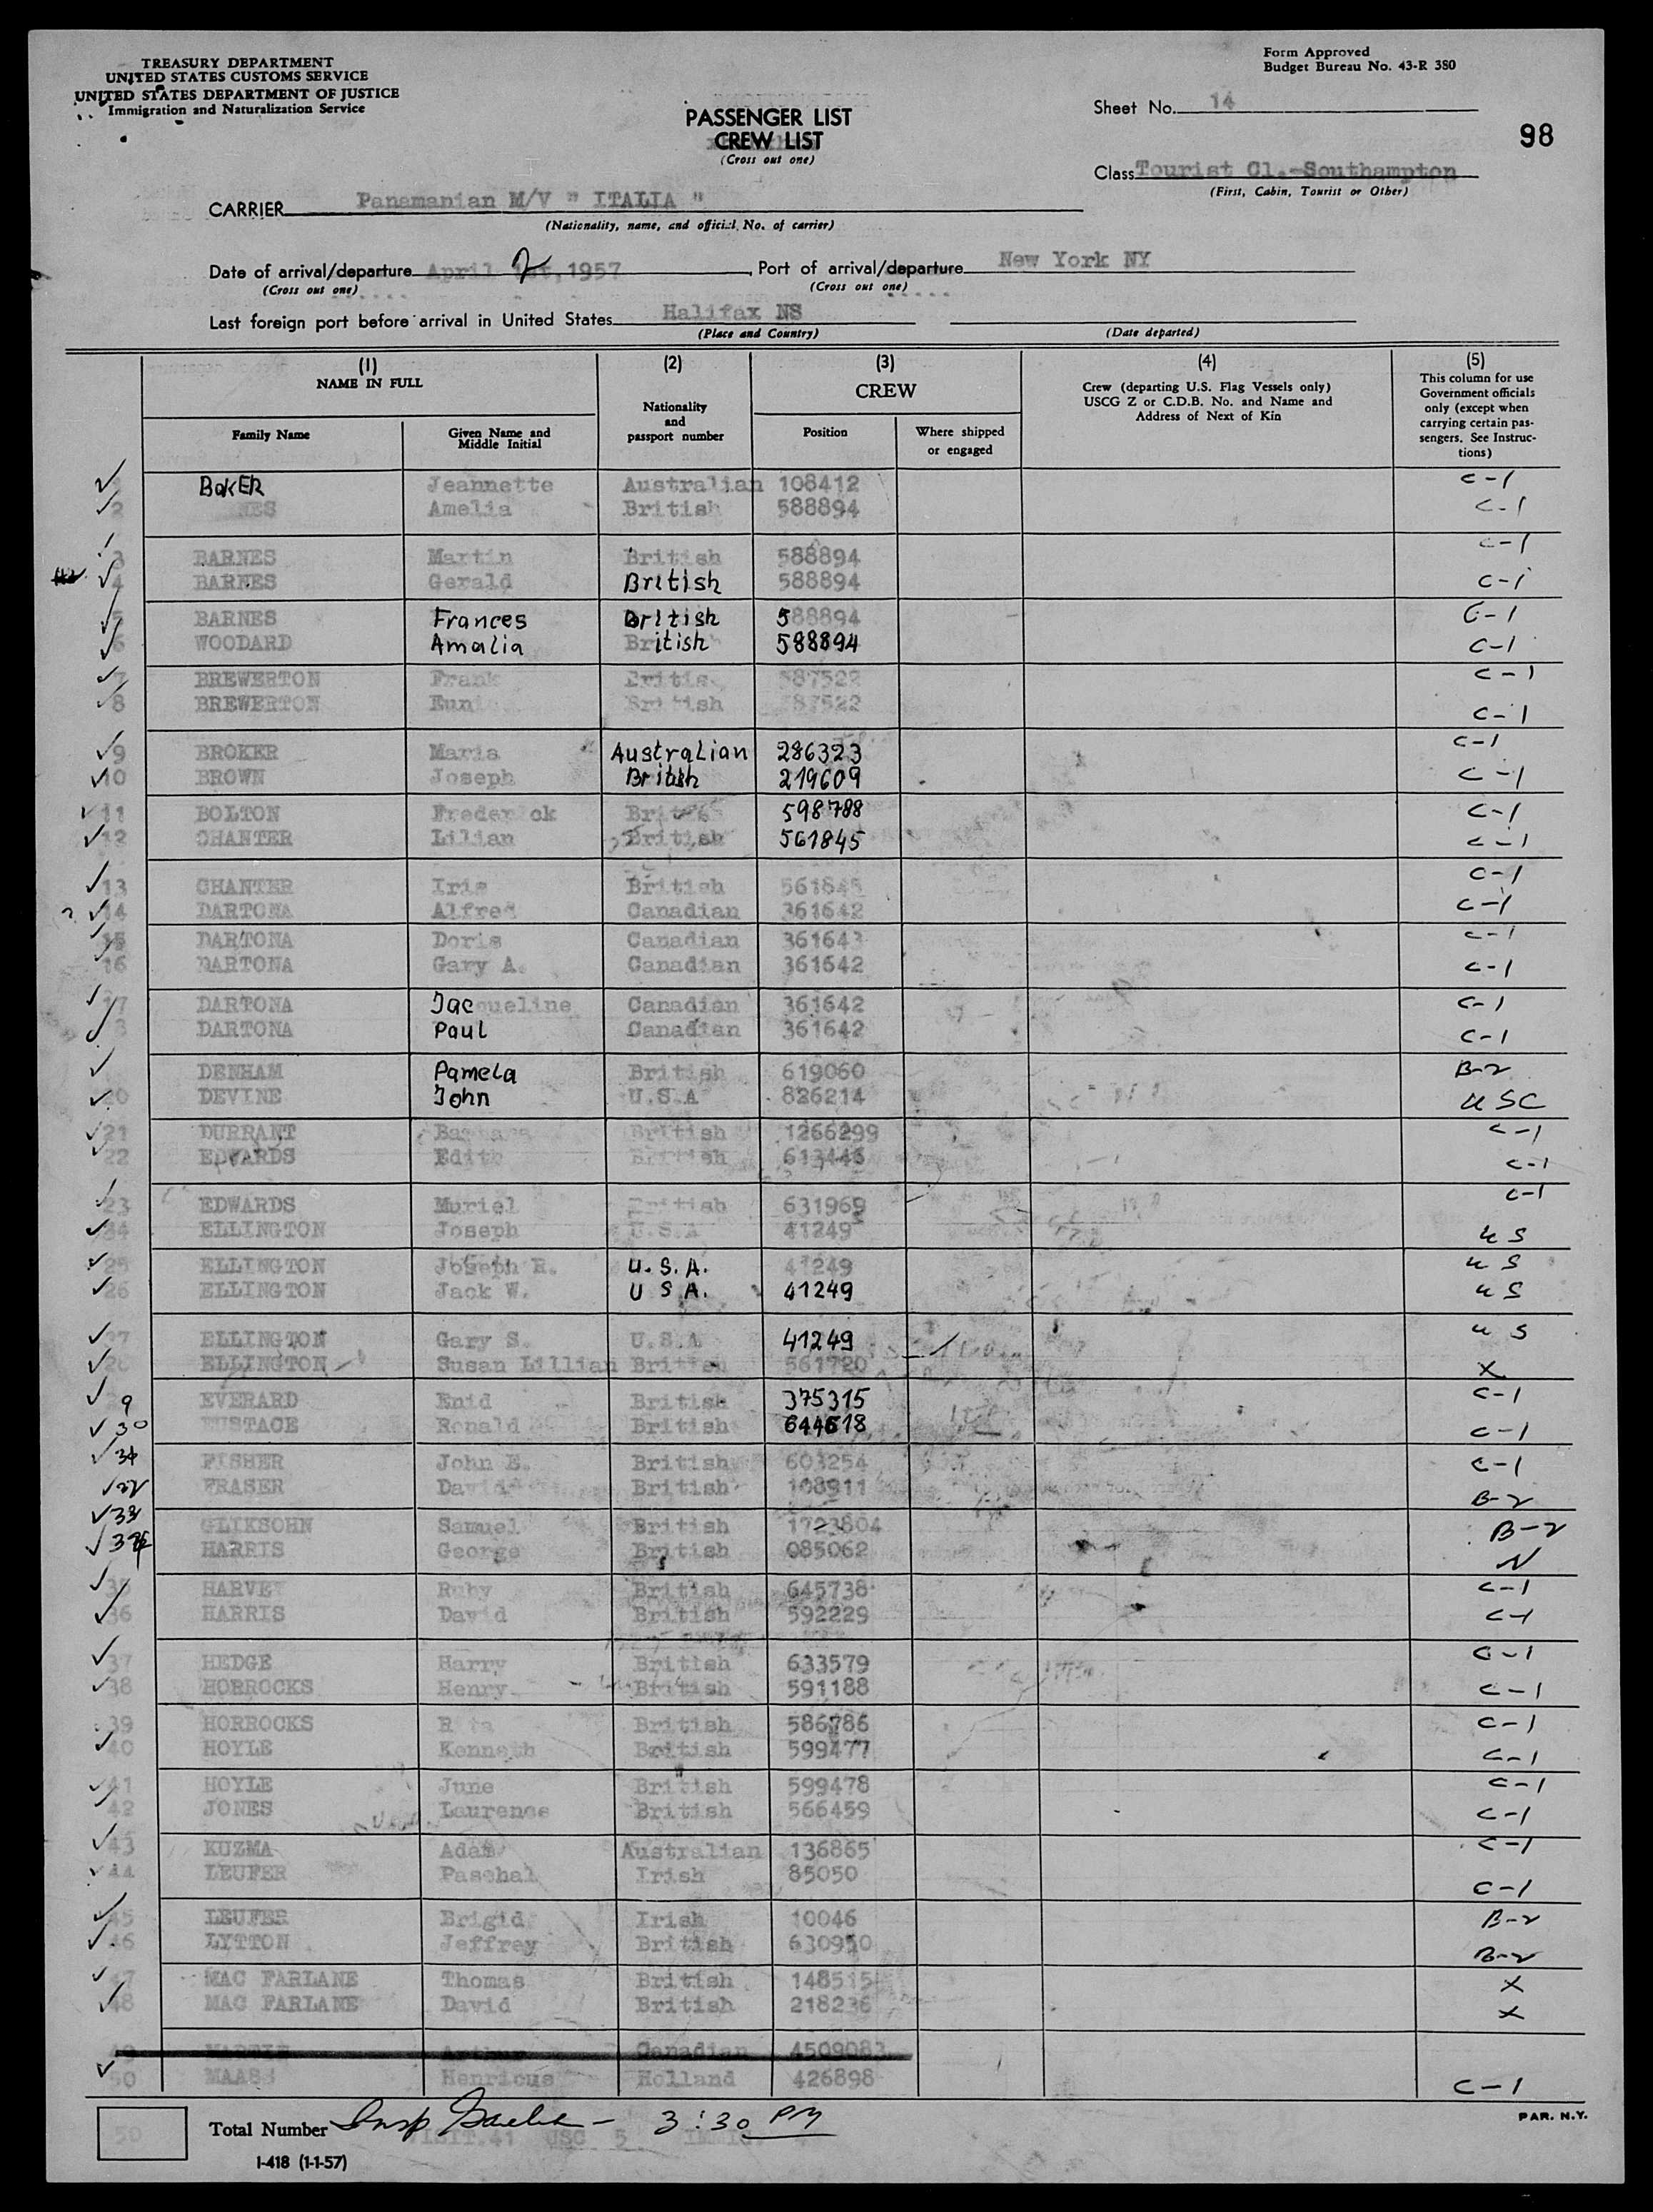 TREASURY DEPARTMENT
UNITED STATES CUSTOMS SERVICE
UNITED STATES DEPARTMENT OF JUSTICE
Immigration and Naturalization Service
Form Approved
Budget Bureau No. 43-R 380
PASSENGER LIST
CREW LIST
(Cross out one)
Sheet No. 14
98
Class Tourist Cl.-Southampton
(First, Cabin, Tourist or Other)
CARRIER Panamanian M/V " ITALIA "
(Nationality, name, and official No. of carrier)
Date of arrival/departure April 2 1st,1957 , Port of arrival/departure New York NY
(Cross out one) (Cross out one)
Last foreign port before arrival in United States Halifax NS
(Place and Country) (Date departed)
(1) NAME IN FULL
Family Name
Given Name and Middle Initial
(2)
Nationality and passport number
(3) CREW
Position
Where shipped or engaged
(4)
Crew (departing U.S. Flag Vessels only)
USCG Z or C.D.B. No. and Name and
Address of Next of Kin
(5)
This column for use
Government officials
only (except when
carrying certain pas-
sengers. See Instruc-
tions)
BAKER Jeannette Australian 108412 C-1
2 NES Amelia British 588894 C-1
3 BARNES Martin British 588894 C-1
4 BARNES Gerald British 588894 C-1
5 BARNES Frances British 588894 C-1
6 WOODARD Amalia British 588894 C-1
7 BREWERTON Frank Britis 587522 C-1
8 BREWERTON Euni British 587522 C-1
9 BROKER Maria Australian 286323 C-1
10 BROWN Joseph British 219609 C-1
11 BOLTON Frederick Brit 598788 C-1
12 CHANTER Lilian British 561845 C-1
13 CHANTER Iris British 561845 C-1
14 DARTONA Alfred Canadian 361642 C-1
15 DARTONA Doris Canadian 361643 C-1
16 DARTONA Gary A. Canadian 361642 C-1
17 DARTONA Jacqueline Canadian 361642 C-1
8 DARTONA Paul Canadian 361642 C-1
DENHAM Pamela British 619060 B-2
20 DEVINE John U.S.A 826214 USC
21 DURRANT British 1266299 C-1
22 EDWARDS Edith British 613446 C-1
23 EDWARDS Muriel British 631969 C-1
24 ELLINGTON Joseph U.S.A 41249 US
25 ELLINGTON Joseph R. U.S.A. 41249 US
26 ELLINGTON Jack W. U S A. 41249 US
27 ELLINGTON Gary S. U.S.A 41249 US
28 ELLINGTON Susan Lillian British 561720 X
9 EVERARD Enid British 375315 C-1
30 EUSTACE Ronald British 644618 C-1
31 FISHER John E. British 603254 C-1
32 FRASER David British 108911 B-2
33 GLIKSOHN Samuel British 1723804 B-2
34 HARRIS George British 085062 N
35 HARVEY Ruby British 645738 C-1
36 HARRIS David British 592229 C-1
37 HEDGE Harry British 633579 C-1
38 HORROCKS Henry British 591188 C-1
39 HORROCKS Rita British 586786 C-1
40 HOYLE Kenneth British 599477 C-1
41 HOYLE June British 599478 C-1
42 JONES Laurence British 566459 C-1
43 KUZMA Adam Australian 136865 C-1
44 LEUFER Paschal Irish 85050 C-1
45 LEUFER Brigid Irish 10046 B-2
46 LYTTON Jeffrey British 630950 B-2
47 MAC FARLANE Thomas British 148515 X
48 MAC FARLANE David British 218236 X
49 Arthur Canadian 4509083
50 MAASS Henricus Holland 426898 C-1
50 Total Number Insp 3:30 PM
41 USC 5
I-418 (1-1-57)
PAR. N.Y.